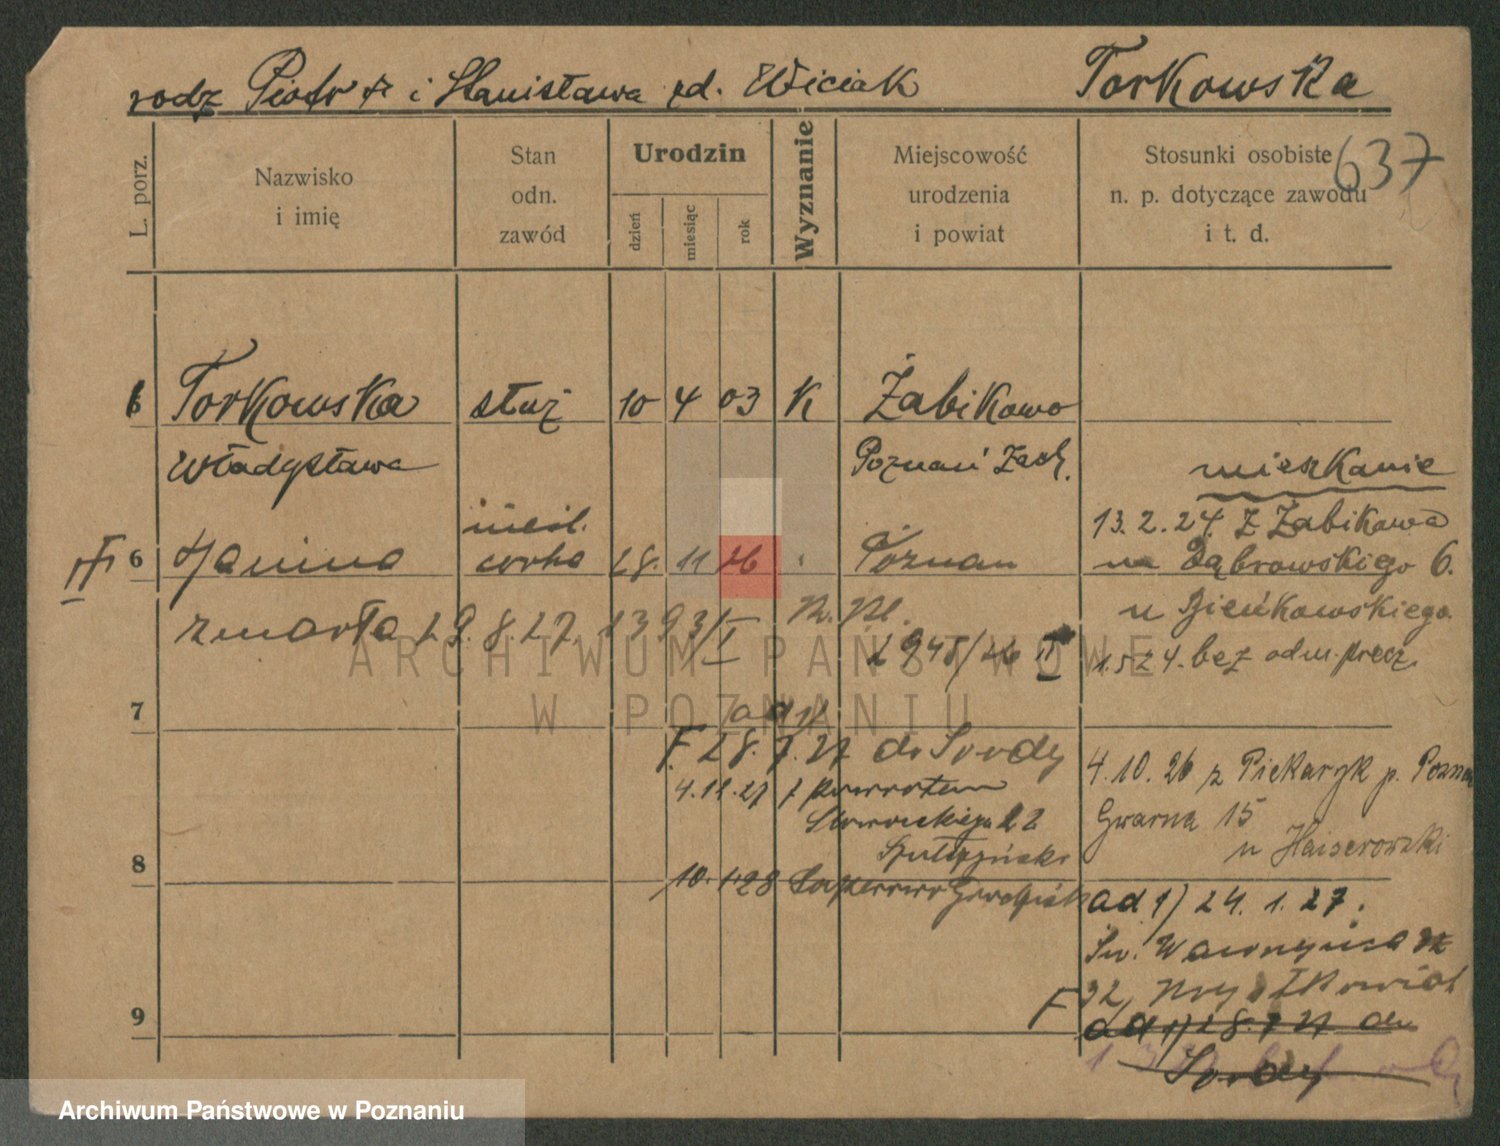 rodz Piotr i Stanisława zd. Wiciak Torkowska
637
L. porz.
Nazwisko i imię
Stan odn. zawód
Urodzin
dzień miesiąc rok
Wyznanie
Miejscowość urodzenia i powiat
Stosunki osobiste n. p. dotyczące zawodu i t. d.
Torkowska służ 10 4 03 K Żabikowo
Władysława Poznań Zach.
mieszkanie
nieśl. 13.2.24. z Żabikowa
6 Janina córka 28. 11 26 Poznań na Dąbrowskiego 6.
zmarła 29.8.27. 1393/I u Bieńkowskiego.
2948/26 II 1.5.24. bez odm. precz.
7
ad 1/
F. 28.7.27 do Środy
4.10.26 z Piekaryk p. Poznań
4.11.27 z powrotem
Słowackiego 22 Gwarna 15
8
10.1.28
ad 1) 24.1.27.
Św. Wawrzyńca
32,
9
F ad 1) 28.7.27 do
Środy
ARCHIWUM PAŃSTWOWE
W POZNANIU
Archiwum Państwowe w Poznaniu